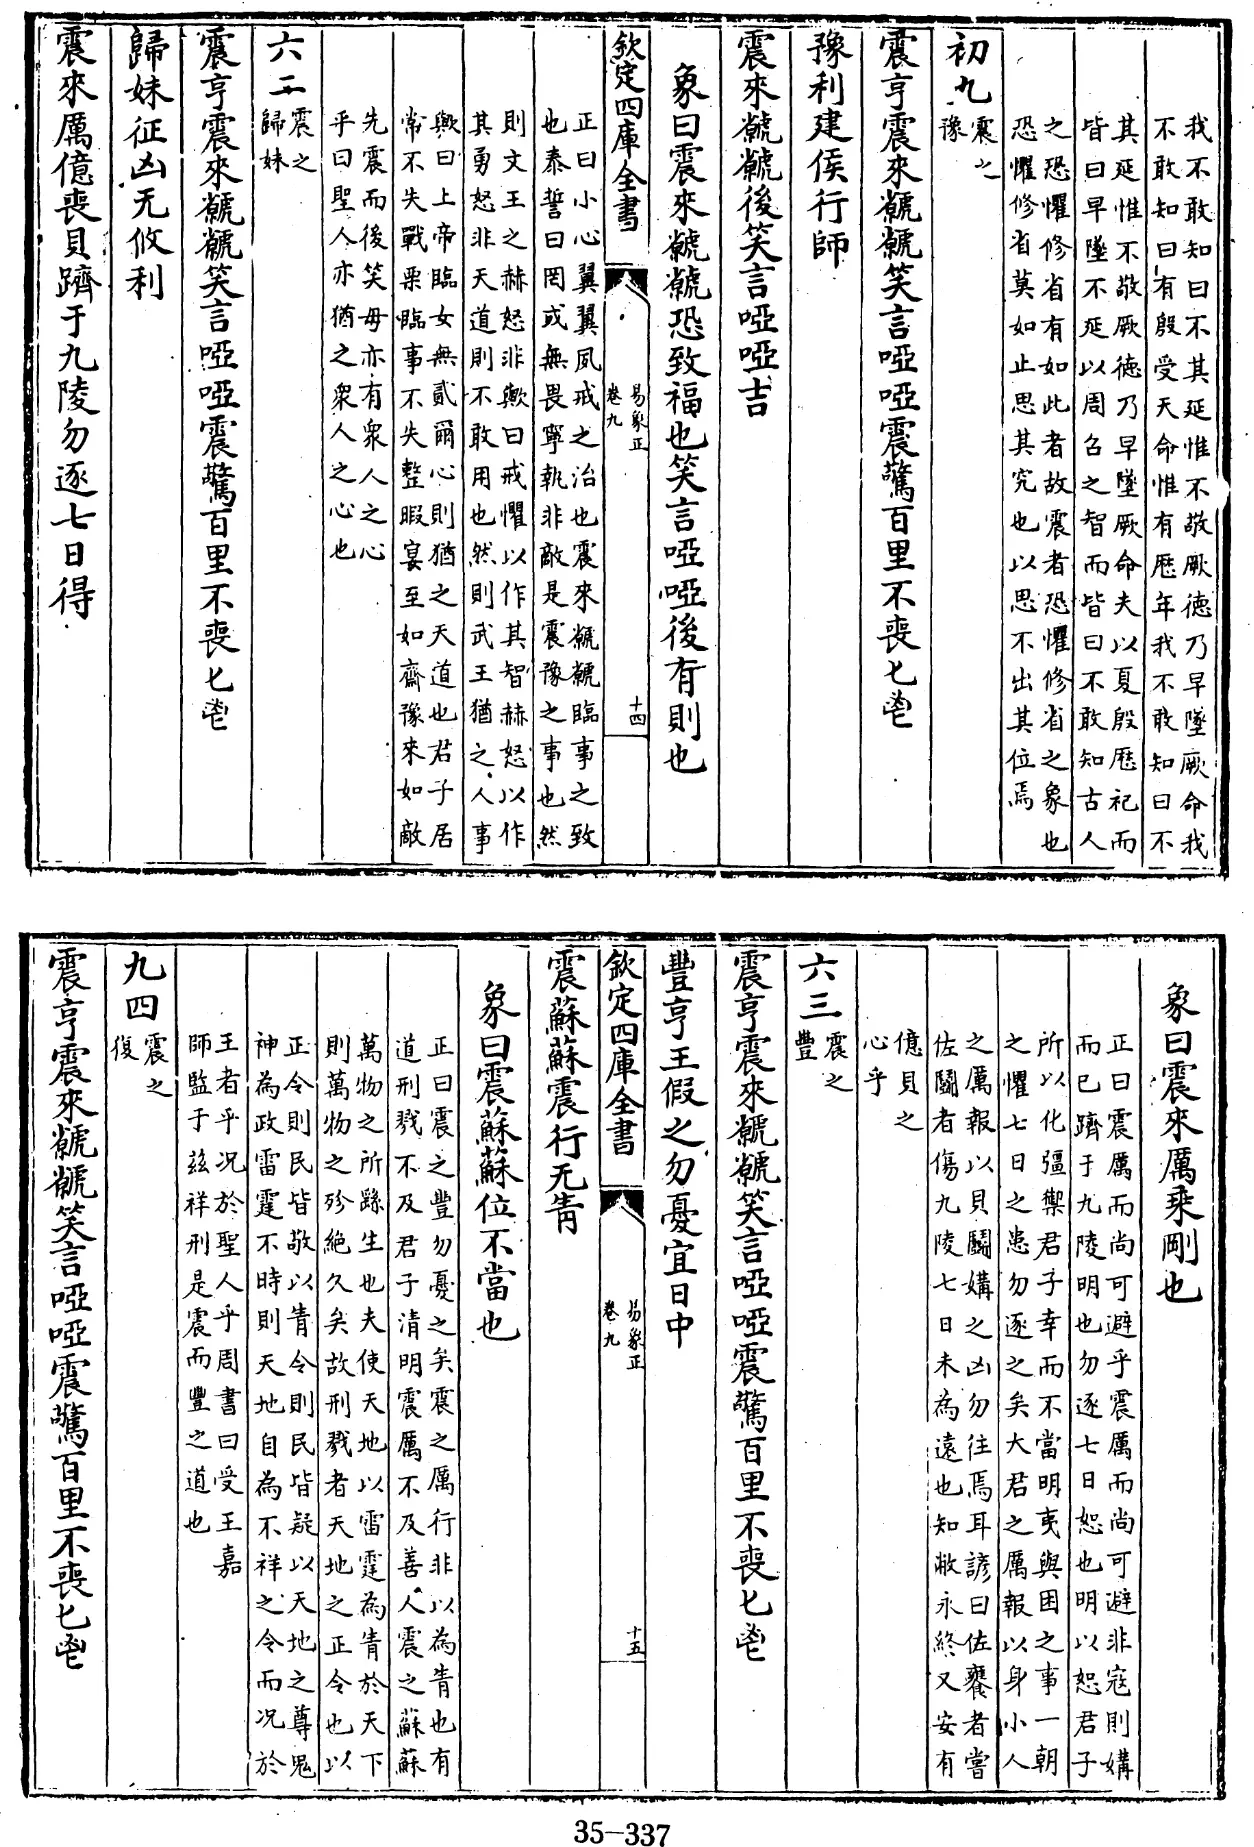 我不敢知曰不其延惟不敬厥德乃早墜厥命我
不敢知曰有殷受天命惟有歴年我不敢知曰不
其延惟不敬厥德乃早墜厥命夫以夏殷歴祀而
皆曰早墜不延以周召之智而皆曰不敢知古人
之恐懼修省有如此者故震者恐懼修省之象也
恐懼修省莫如止思其究也以思不出其位焉
初九
震之
豫
震亨震來虩虩笑言啞啞震驚百里不喪匕鬯
豫利建侯行師
震來虩虩後笑言啞啞吉
象曰震來虩虩恐致福也笑言啞啞後有則也
欽定四庫全書
易象正
卷九
十四
正曰小心翼翼夙戒之治也震來虩虩臨事之致
也泰誓曰罔或無畏寧執非敵是震豫之事也然
則文王之赫怒非歟曰戒懼以作其智赫怒以作
其勇怒非天道則不敢用也然則武王猶之人事
歟曰上帝臨女無貳爾心則猶之天道也君子居
常不失戰栗臨事不失整暇宴至如齋豫來如敵
先震而後笑毋亦有衆人之心
乎曰聖人亦猶之衆人之心也
六二
震之
歸妹
震亨震來虩虩笑言啞啞震驚百里不喪匕鬯
歸妹征凶无攸利
震來厲億喪貝躋于九陵勿逐七日得
象曰震來厲乘剛也
正曰震厲而尚可避乎震厲而尚可避非寇則媾
而已躋于九陵明也勿逐七日恕也明以恕君子
所以化彊禦君子幸而不當明夷與困之事一朝
之懼七日之患勿逐之矣大君之厲報以身小人
之厲報以貝鬭媾之凶勿往焉耳諺曰佐饔者嘗
佐鬭者傷九陵七日未為遠也知敝永終又安有
億貝之
心乎
六三
震之
豐
震亨震來虩虩笑言啞啞震驚百里不喪匕鬯
豐亨王假之勿憂宜日中
欽定四庫全書
易象正
卷九
十五
震蘇蘇震行无眚
象曰震蘇蘇位不當也
正曰震之豐勿憂之矣震之厲行非以為眚也有
道刑戮不及君子清明震厲不及善人震之蘇蘇
萬物之所繇生也夫使天地以雷霆為眚於天下
則萬物之殄絶久矣故刑戮者天地之正令也以
正令則民皆敬以眚令則民皆疑以天地之尊鬼
神為政雷霆不時則天地自為不祥之令而况於
王者乎况於聖人乎周書曰受王嘉
師監于茲祥刑是震而豐之道也
九四
震之
復
震亨震來虩虩笑言啞啞震驚百里不喪匕鬯
35-337